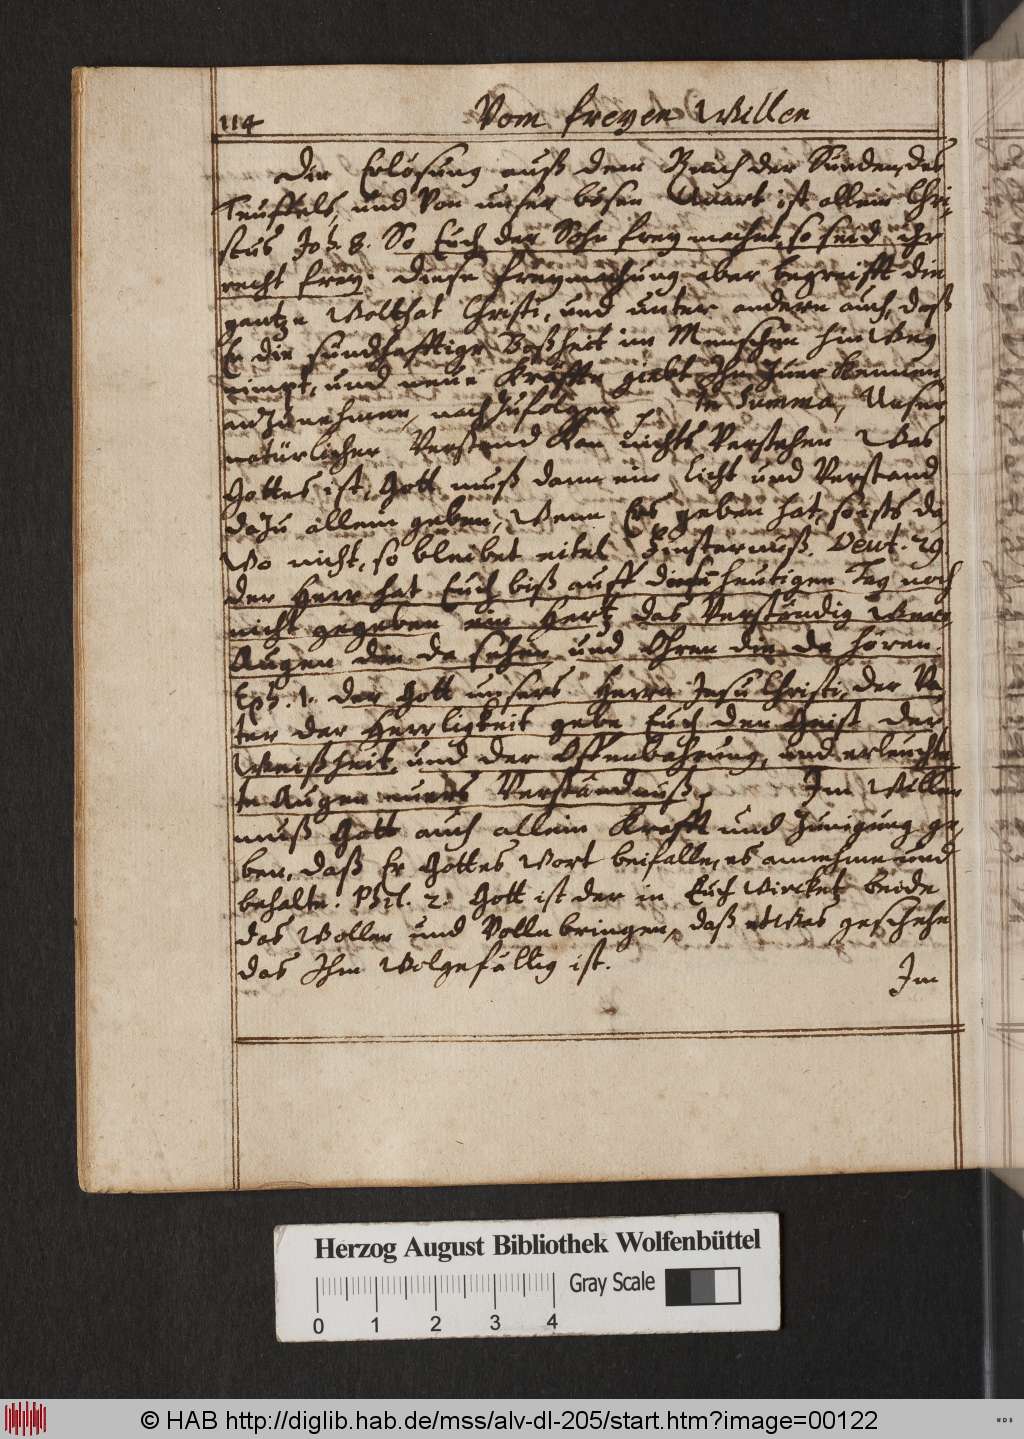 114 Vom freyen Willen
Die Erlösung auß dem Reich der Sünden, des
Teuffels, und Von unser bösen Unart ist allein Chri-
stus Joh. 8. So Euch der Sohn frey machet, so seid ihr
recht frey. diese freymachung aber begreifft die
gantze Wolthat Christi, und unter andern auch, daß
Er die sündhafftige Boßheit im Menschen hinWeg
nimpt, und neue Kräffte giebt Ihn Zuerkennen
anZunehmen, nachZufolgen. In Summa, Unser
natürlicher Verstand Kan nichts Verstehen Was
Gottes ist, Gott muß dann ein Licht und Verstand
daZu allein geben, Wenn Ers geben hat, so ists da,
Wo nicht, so bleibet eitel Finsternuß. Deut. 29.
der Herr hat Euch biß auff diesen heutigen Tag noch
nicht gegeben ein Hertz das Verständig Were,
Augen die da sehen und Ohren die da hören.
Eph. 1. der Gott unsers Herrn Jesu Christi, der Va-
ter der Herrligkeit gebe Euch den Geist der
Weißheit, und der Offenbahrung, und erleuchte-
te Augen euers Verständnuß. Im Willen
muß Gott auch allein Krafft und Zuneigung ge-
ben, daß Er Gottes Wort beifalle, es annehme und
behalte. Phil. 2. Gott ist der in Euch Wircket beide
das Wollen und Vollnbringen, daß etWas geschehe
das Ihm Wolgefällig ist.
Im
Herzog August Bibliothek Wolfenbüttel
Gray Scale
0 1 2 3 4
© HAB http://diglib.hab.de/mss/alv-dl-205/start.htm?image=00122
WDB